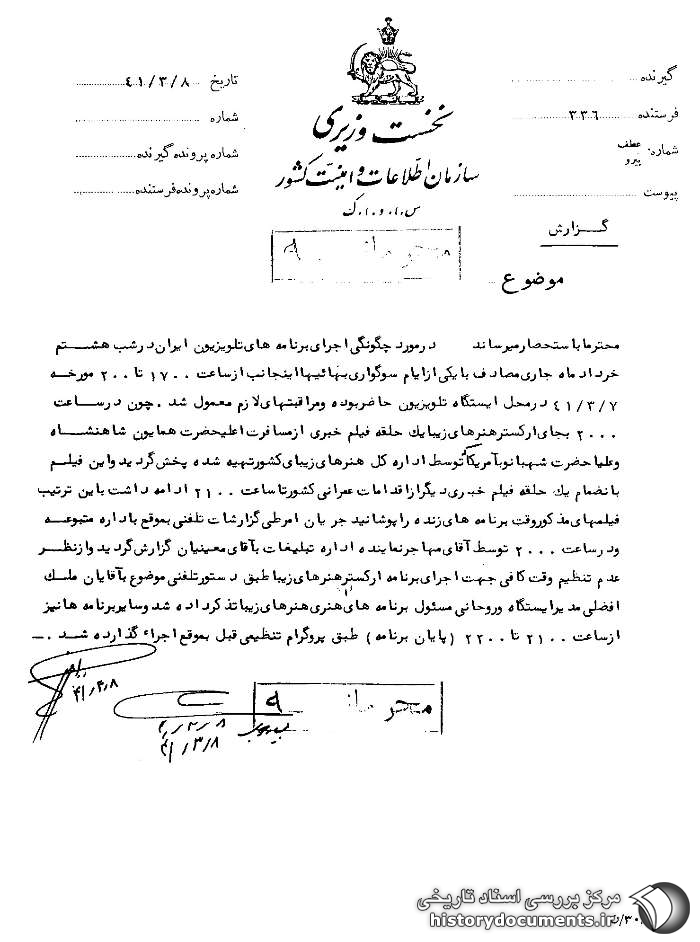 گیرنده
فرستنده ۳۳٦
شماره: عطف
پیرو
پیوست
گـزارش
نخست وزیری
سازمان اطلاعات و امنیت کشور
س.ا.و.ا.ک
تاریخ ٤۱/۳/۸
شماره
شماره پرونده گیرنده
شماره پرونده فرستنده
محرمانه
موضوع
محترما باستحضار میرساند در مورد چگونگی اجرای برنامه های تلویزیون ایران در شب هشتم
خرداد ماه جاری مصادف با یکی از ایام سوگواری بهائیها اینجانب از ساعت ۱۷۰۰ تا ۲۰۰ مورخه
٤۱/۳/۷ در محل ایستگاه تلویزیون حاضر بوده و مراقبتهای لازم معمول شد . چون در ساعت
۲۰۰۰ بجای ارکستر هنرهای زیبا یک حلقه فیلم خبری از مسافرت اعلیحضرت همایون شاهنشاه
و علیا حضرت شهبانو بآمریکا که توسط اداره کل هنرهای زیبای کشور تهیه شده پخش گردید و این فیلم
با نضمام یک حلقه فیلم خبری دیگر از اقدامات عمرانی کشور تا ساعت ۲۱۰۰ ادامه داشت باین ترتیب
فیلمهای مذکور وقت برنامه های زنده را پوشانید جریان امر طی گزارشات تلفنی بموقع باداره متبوعه
و در ساعت ۲۰۰۰ توسط آقای مهاجر نماینده اداره تبلیغات بآقای معینیان گزارش گردید و از نظر
عدم تنظیم وقت کافی جهت اجرای برنامه ارکستر هنرهای زیبا طبق دستور تلفنی موضوع بآقایان ملک
افضلی مدیر ایستگاه و روحانی مسئول برنامه های هنری هنرهای زیبا تذکر داده شد و سایر برنامه ها نیز
از ساعت ۲۱۰۰ تا ۲۲۰۰ (پایان برنامه) طبق پروگرام تنظیمی قبل بموقع اجراء گذارده شد .
٤۱/۳/۸
محرمانه
٤۱/۳/۸
مرکز بررسی اسناد تاریخی
historydocuments.ir